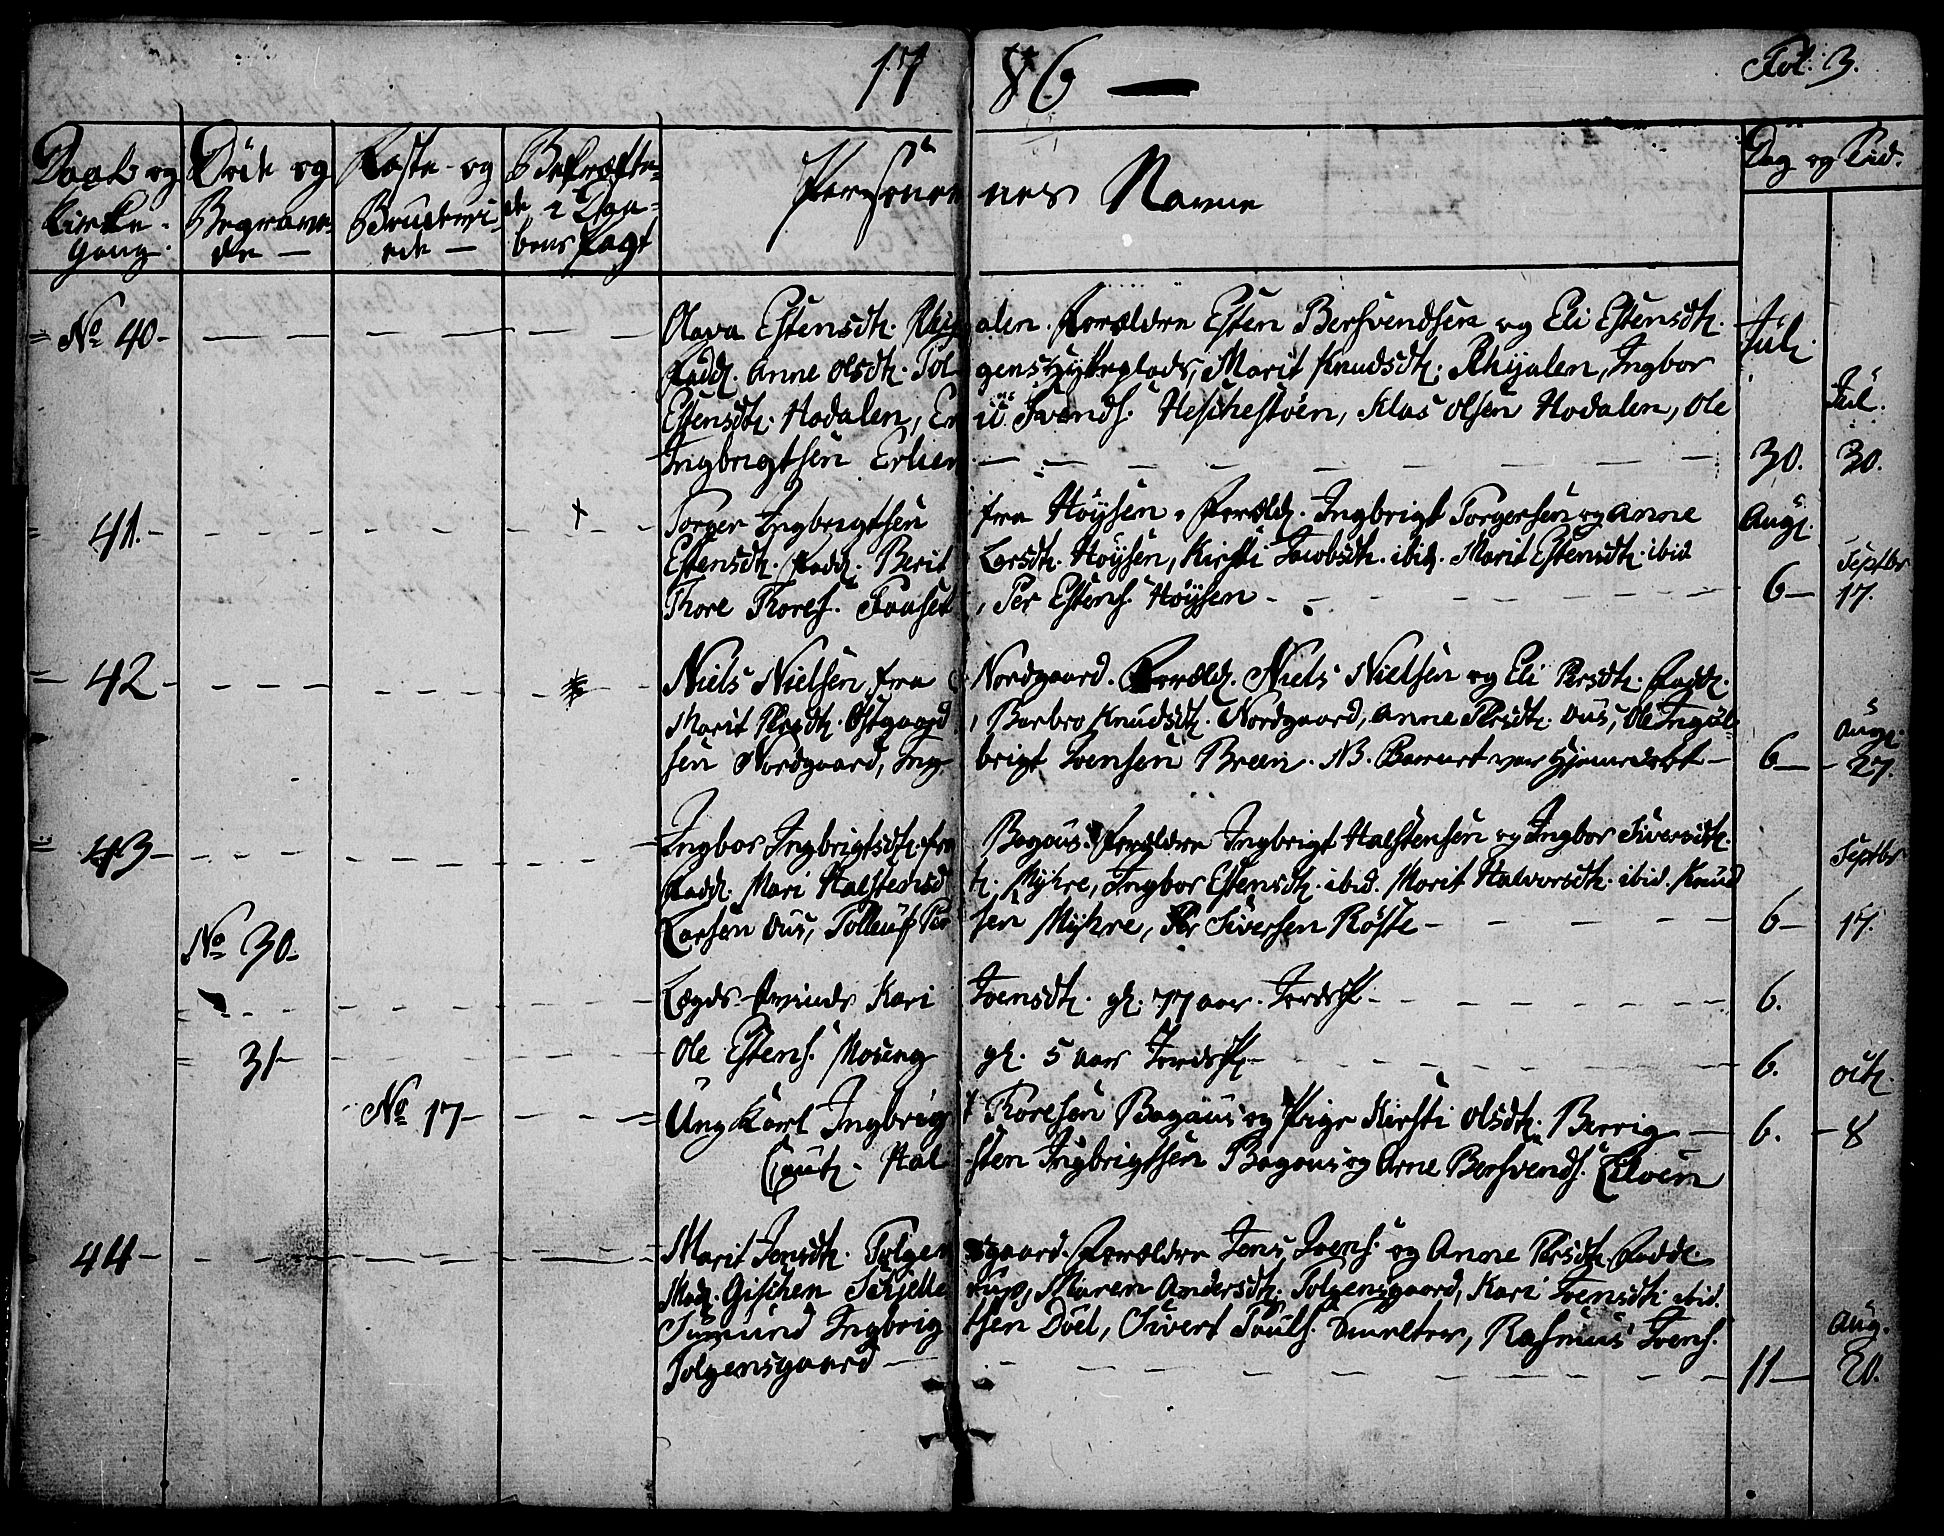 1786 — Fol: 3.
Daab og Kirke-gang. Døde og Begravede — Fæste- og Brudeviede — Bekræftede i Daabens Pagt Personernes Navne Dag og Tid.
No 40 - Olava Estensdtr. Rhyjalen. Forældre Esten Bersvendsen og Eli Estensdtr. Julj
Fadd. Anne Olsdtr. Tolgens Hytteplads, Marit Knudsdtr. Rhyjalen, Ingbor
Estensdtr. Hodalen, Svends. Heschestøen, Klas Olsen Hodalen, Ole Jul.
Ingbrigtsen Erlien 30. 30.
41. Torger Ingbrigtsen fra Høysen. Foræld. Ingbrigt Torgersen og Anne Aug.
Estensdtr. Fadd. Berit Larsdtr. Høysen, Kirsti Jacobsdtr. ibid. Marit Estensdtr. ibid Septbr
Thore Thores. Faaset, Per Estens. Høysen 6 — 17.
42 Niels Nielsen fra Nordgaard. Foræld. Niels Nielsen og Eli Persdtr. Fadd.
Marit Persdtr. Østgaard, Barbro Knudsdtr. Nordgaard, Anne Persdtr. Ous, Ole Ingbol- Aug.
sen Nordgaard, Ingbrigt Joensen Breen. NB. Barnet var Hjemedøbt — 6 — 27.
43 Ingbor Ingbrigtsdtr. fra Bogous. Forældre Ingbrigt Halstensen og Ingbor Siversdtr.
Fadd. Mari Halstensdtr. Myhre, Ingbor Estensdtr. ibid. Marit Halvorsdtr. ibid. Knud Septbr
Larsen Ous, Tolleuf Persen Myhre, Per Siversen Røste — 6 — 17.
No 30.
Lægds-Qvinde Kari Joensdtr. gl. 77 aar. Jordsf. 6.
31 Ole Estens. Moseng gl. 5 aar Jordsf. 6.
Octr.
No 17 - Ung Karl Ingbrigt Thoresen Bogous og Pige Kirsti Olsdtr. Berrig — 6. — 8
Caut. Halsten Ingbrigtsen Bogous og Arne Bersvends. Eiløen
44 - Marit Jensdtr. Tolgensgaard. Forældre Jens Joens. og Anne Persdtr. Fadd.
Mad. Gischen Schjellerup, Maren Andersdtr. Tolgensgaard, Kari Joensdtr. ibid.
Simund Ingbrigtsen Døel, Sivert Pouls. Smelter, Rasmus Joens. Aug.
Tolgensgaard — 11 — 20.